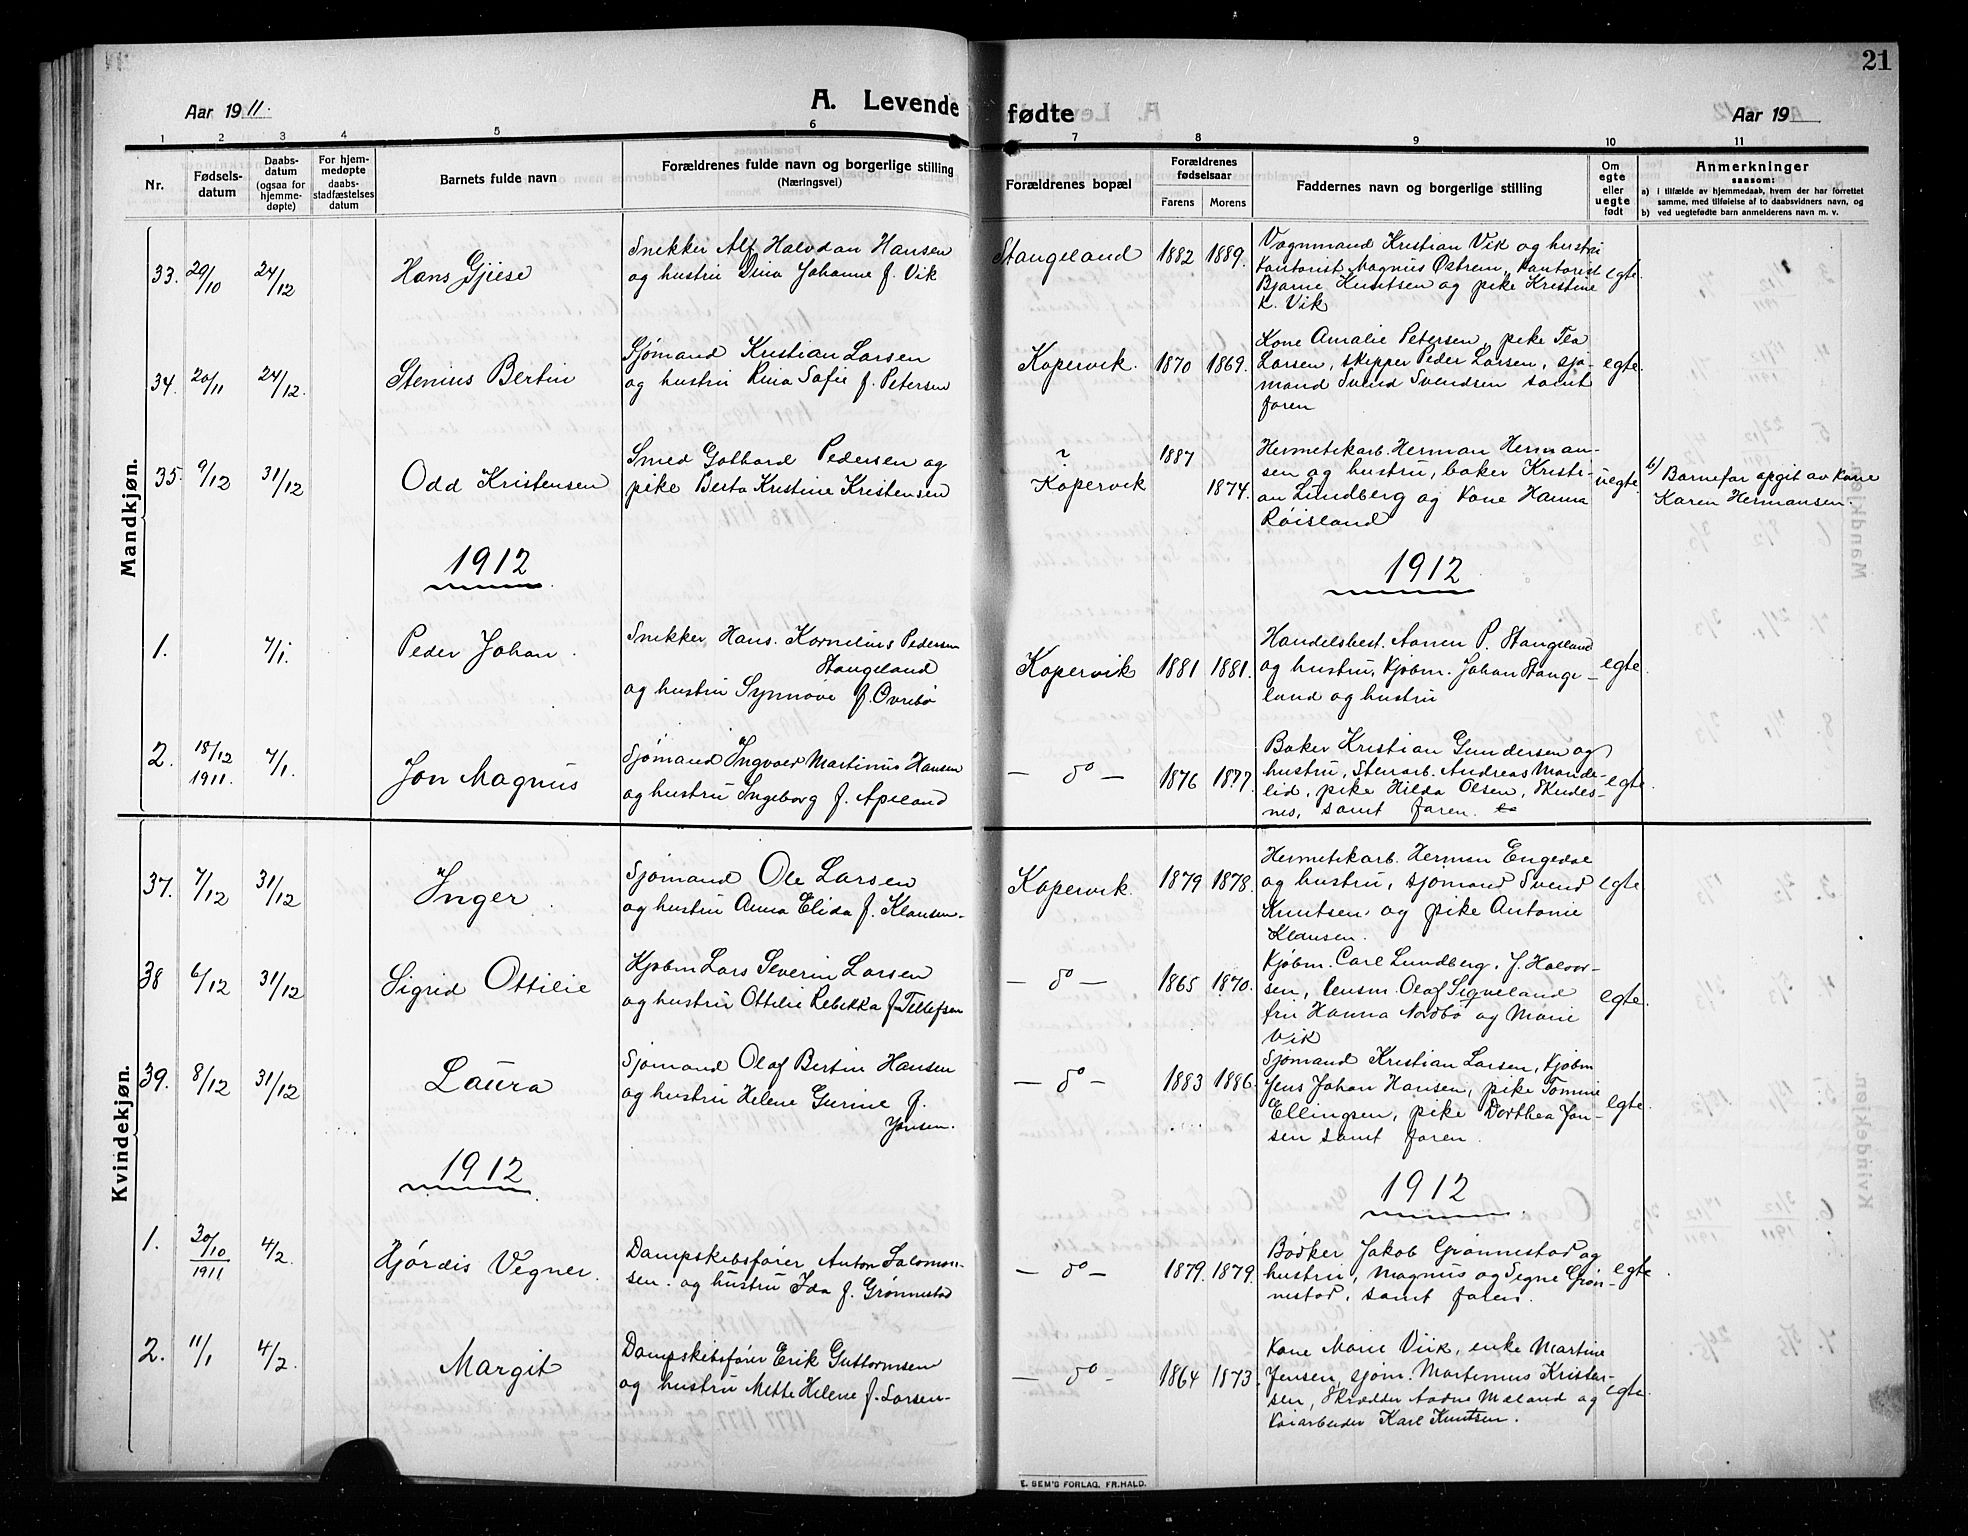 21
Aar 1911.
A. Levende fødte
Aar 19
1 2 3 4 5 6 7 8 9 10 11
Nr.
Fødsels-
datum
Daabs-
datum
(ogsaa for
hjemme-
døpte)
For hjem-
medøpte
daabs-
stadfæstelses
datum
Barnets fulde navn
Forældrenes fulde navn og borgerlige stilling
(Næringsvei)
Forældrenes bopæl
Forældrenes
fødselsaar
Farens Morens
Faddernes navn og borgerlige stilling
Om
egte
eller
uegte
født
Anmerkninger
saasom:
a) i tilfælde av hjemmedaab, hvem der har forrettet
samme, med tilføielse af to daabsvidners navn, og
b) ved uegtefødte barn anmelderens navn m. v.
Mandkjøn.
33. 29/10 24/12 Hans Gjiese
Snekker Alf Halvdan Hansen
og hustru Dina Johanne f. Vik
Stangeland 1882 1889.
Vognmand Kristian Vik og hustru
Kontorist Magnus Østrem, Kontorist
Bjarne Knutsen og pike Kristine
K. Vik
egte.
34. 20/11 24/12. Stenius Bertin
Sjømand Kristian Larsen
og hustru Rina Sofie f. Petersen
Kopervik. 1870 1869.
Kone Amalie Petersen, pike Tea
Larsen, skipper Peder Larsen, sjø-
mand Svend Svendsen samt
faren
egte.
35. 9/12 31/12 Odd Kristensen
Smed Gothard Pedersen og
pike Berta Kristine Kristensen
? 1887
Kopervik 1874.
Hermetikarb. Herman Herman-
sen og hustru, baker Kristi-
an Lundberg og Kone Hanna
Røisland
uegte.
b) Barnefar opgit av Kone
Karen Hermansen.
1912 1912
1. 7/1. Peder Johan.
Snekker Hans Kornelius Pedersen
Stangeland
og hustru Synnøve f. Øvrebø
Kopervik 1881 1881.
Handelsbest. Aanen P. Stangeland
og hustru, Kjøbm. Johan Stange-
land og hustru
egte.
2. 18/12 1911. 7/1. Jon Magnus
Sjømand Ingvald Martinus Hansen
og hustru Ingeborg f. Apeland
— do — 1876 1877.
Baker Kristian Gundersen og
hustru, Stenarb. Andreas Mande-
lid, pike Hilda Olsen, Skudes-
nes, samt faren.
egte.
Kvindekjøn.
37. 7/12 31/12 Inger.
Sjømand Ole Larsen
og hustru Anna Elida f. Klausen.
Kopervik. 1879 1878.
Hermetikarb. Herman Engedal
og hustru, sjømand Svend
Knutsen, og pike Antonie
Klausen.
egte.
38 6/12 31/12 Sigrid Ottilie
Kjøbm Lars Severin Larsen
og hustru Ottilie Rebekka f. Tellefsen
— do — 1865 1870.
Kjøbm. Carl Lundberg, J. Halvor-
sen, Lensm. Olaf Sigveland
fru Hanna Nordbø og Marie
Vik
egte.
39. 8/12 31/12 Laura
Sjømand Olaf Bertin Hansen
og hustru Helene Gurine f.
Jensen.
— do — 1883 1886.
Sjømand Kristian Larsen, Kjøbm
Jens Johan Hansen, pike Tomine
Ellingsen, pike Dorthea Jan-
sen samt faren.
egte.
1912. 1912
1. 30/10 1911 4/2. Hjørdis Vegner.
Dampskibsfører Anton Salomon-
sen. og hustru Ida f. Grønnestad
— do — 1879. 1879.
Bødker Jakob Grønnestad og
hustru, Magnus og Signe Grøn-
nestad, samt faren.
egte.
2. 11/1 4/2. Margit
Dampskibsfører Erik Guttormsen
og hustru Mette Helene f. Larsen
— do — 1864 1873.
Kone Marie Viik, enke Martine
Jensen, sjøm. Martinius Kristen-
sen, Skrædder Aadne Mæland og
Kaiarbeider Karl Knutsen.
egte.
E. SEM'S FORLAG, FR.HALD.